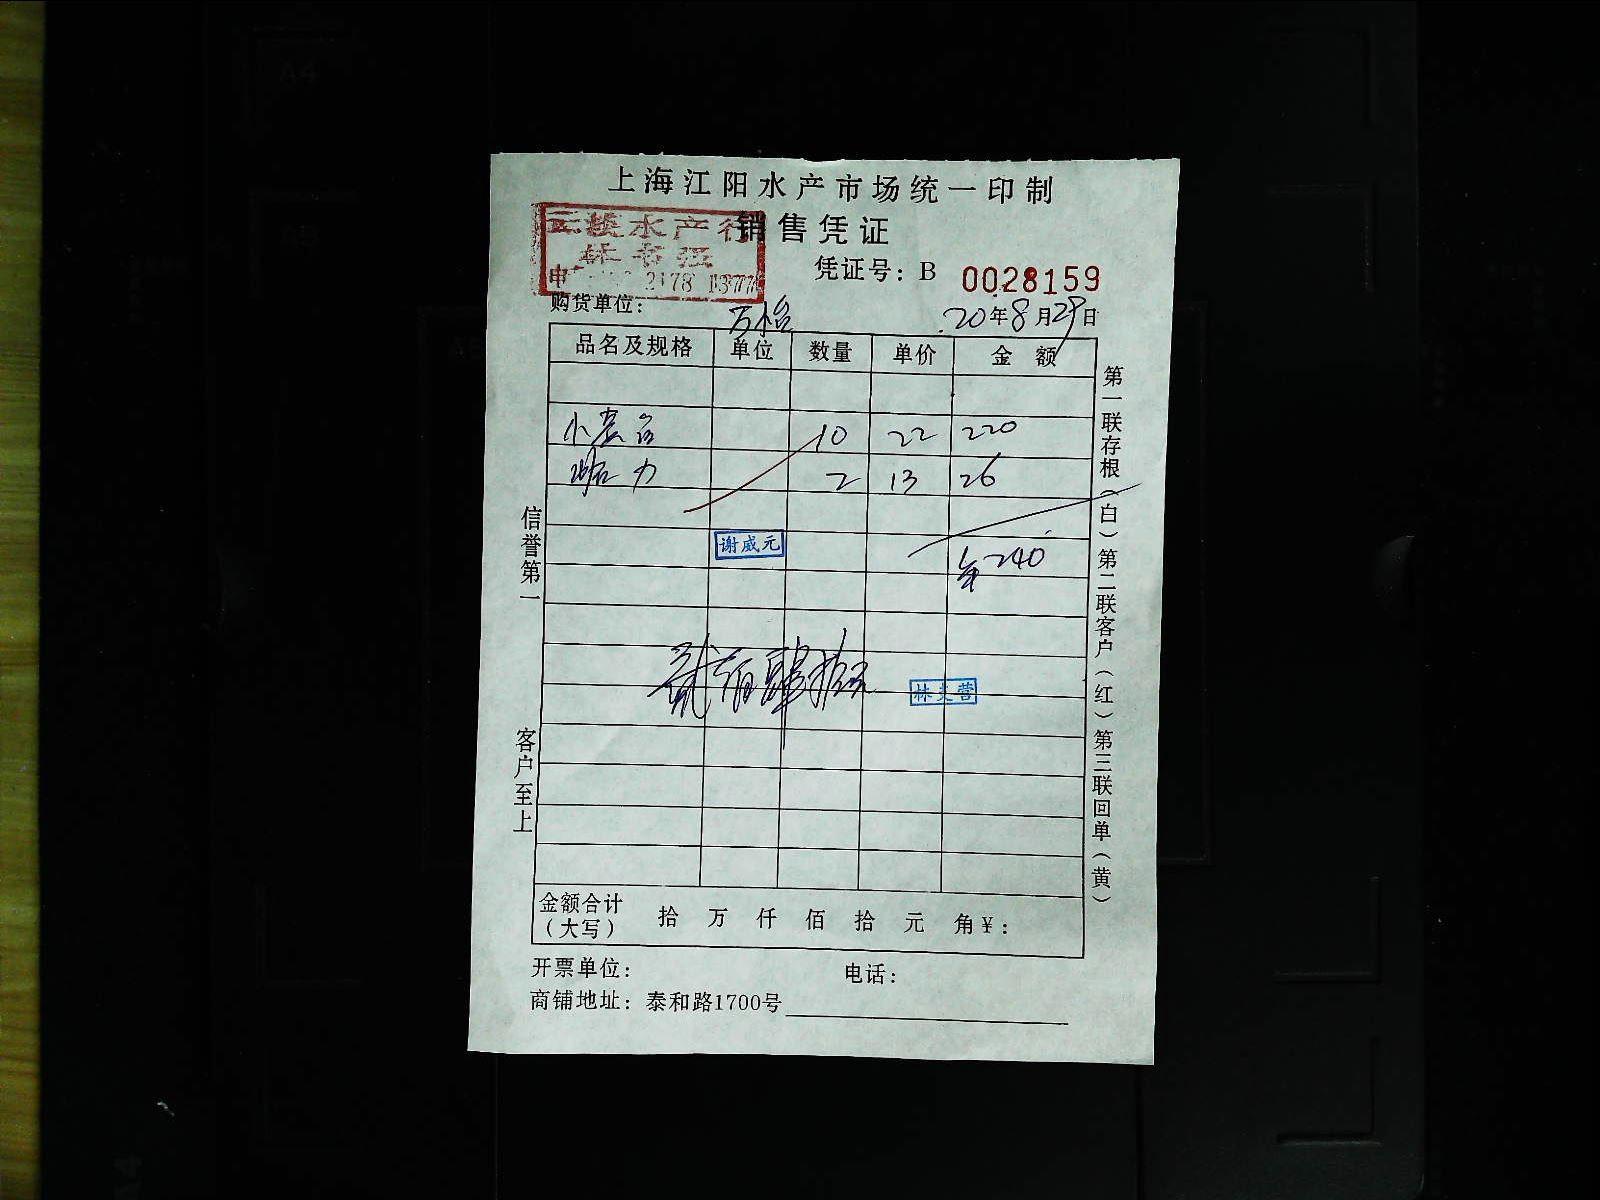 上海江阳水产市场统一印制
销售凭证
水产行
凭证号：B 0028159
购货单位：
20年8月29日
品名及规格 单位 数量 单价 金额
小 10 22 220
蛤力 2 13 26
240
谢威元
贰佰肆拾元
林 营
金额合计（大写） 拾 万 仟 佰 拾 元 角¥：
开票单位： 电话：
商铺地址：泰和路1700号
信誉第一
客户至上
第一联存根（白）第二联客户（红）第三联回单（黄）